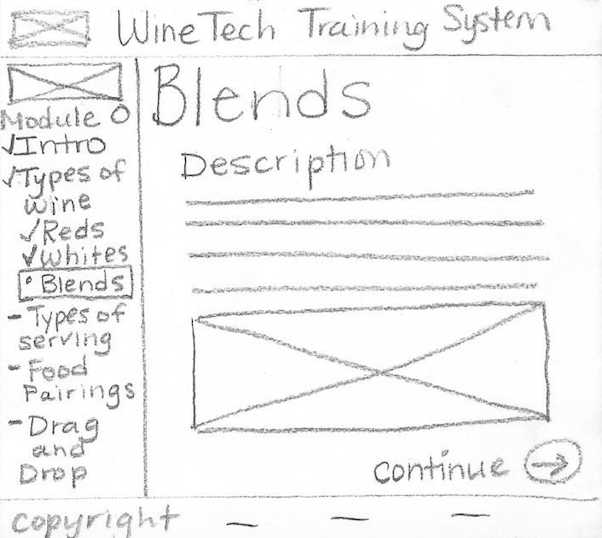 WineTech Training System
Module 0
✓Intro
✓Types of
wine
✓Reds
✓Whites
• Blends
- Types of
serving
- Food
Pairings
- Drag
and
Drop
Blends
Description
continue →
copyright